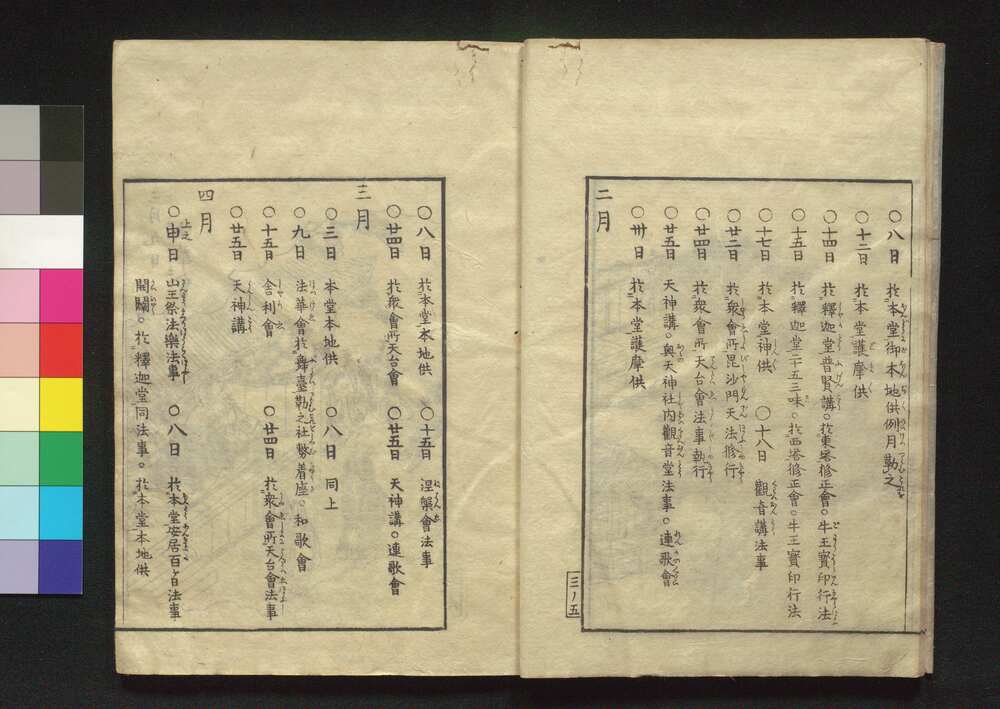 ○八日 於本堂御本地供例月勤之
○十二日 於本堂護摩供
○十四日 於釋迦堂普賢講。於東塔修正會。牛王寳印行法
○十五日 於釋迦堂二十五三昧。於西塔修正會。牛王寳印行法
○十七日 於本堂神供 ○十八日 觀音講法事
○廿二日 於衆會所毘沙門天法修行
○廿四日 於衆會所天台會法事執行
○廿五日 天神講。奥天神社内觀音堂法事。連歌會
○卅日 於本堂護摩供
二月
三ノ五
○八日 於本堂本地供 ○十五日 涅槃會法事
○廿四日 於衆會所天台會 ○廿五日 天神講。連歌會
三月
○三日 本堂本地供 ○八日 同上
○九日 法華會於舞臺勤之社務着座。和歌會
○十五日 舎利會 ○廿四日 於衆會所天台會法事
○廿五日 天神講
四月
○上之申日 山王祭法樂法事 ○八日 於本堂安居百ケ日法事
開闢。於釋迦堂同法事。於本堂本地供